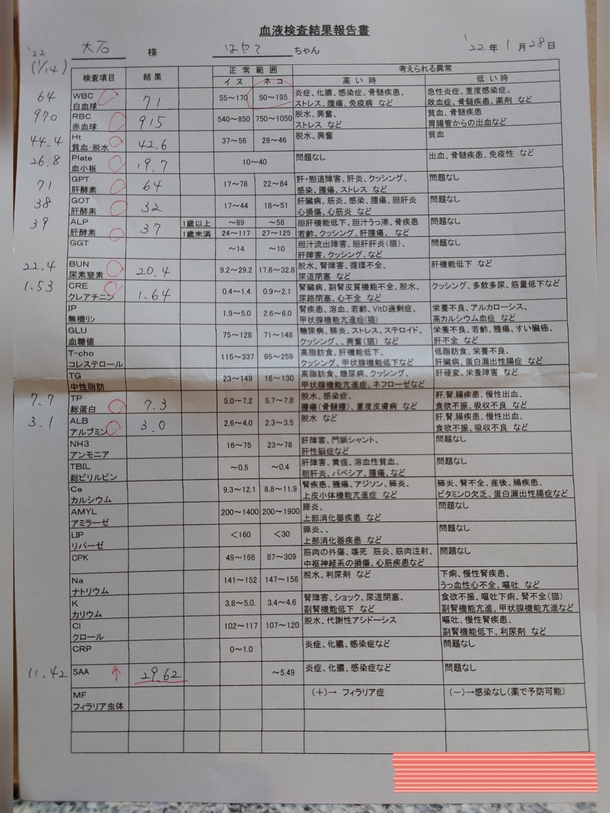 血液検査結果報告書
'22 (1/14)
大石 様 はやて ちゃん '22年1月28日
検査項目 結果 正常範囲 考えられる異常
イヌ ネコ 高い時 低い時
64 WBC 白血球 71 55～170 50～195 炎症、化膿、感染症、骨髄疾患、ストレス、腫瘍、免疫病 など 急性炎症、重度感染症、敗血症、骨髄疾患、薬剤 など
970 RBC 赤血球 915 540～850 750～1050 脱水、興奮、ストレス など 貧血、骨髄疾患 胃腸管からの出血など
44.4 Ht 貧血・脱水 42.6 37～56 28～46 脱水、興奮 貧血
26.8 Plate 血小板 19.7 10～40 問題なし 出血、骨髄疾患、免疫性 など
71 GPT 肝酵素 64 17～78 22～84 肝・胆道障害、肝炎、クッシング、感染、腫瘍、ストレス など 問題なし
38 GOT 肝酵素 32 17～44 18～51 肝臓病、筋炎、感染、腫瘍、胆肝炎 心損傷、心筋炎 など 問題なし
39 ALP 肝酵素 37 1歳以上 ～89 ～58 胆肝機能低下、胆汁うっ滞、骨疾患 問題なし
1歳未満 24～117 27～125 若齢、クッシング、肝腫瘍、 など
GGT ～14 ～10 胆汁流出障害、胆肝肝炎(猫)、肝障害、クッシング など 問題なし
22.4 BUN 尿素窒素 20.4 9.2～29.2 17.6～32.8 脱水、腎障害、循環不全、尿道閉塞 など 肝機能低下 など
1.53 CRE クレアチニン 1.64 0.4～1.4 0.9～2.1 腎臓病、副腎皮質機能不全、脱水、尿路閉塞、心不全 など クッシング、多飲多尿、筋量低下など
IP 無機リン 1.9～5.0 2.6～6.0 腎疾患、溶血、若齢、VitD過剰症、甲状腺機能亢進症(猫) 栄養不良、アルカローシス、高カルシウム血症 など
GLU 血糖値 75～128 71～148 糖尿病、膵炎、ストレス、ステロイド、クッシング、、興奮(猫) など 栄養不良、若齢、腫瘍、すい臓癌、肝不全 など
T-cho コレステロール 115～337 95～259 高脂肪食、肝機能低下、クッシング、甲状腺機能低下など 低脂肪食、栄養不良、肝臓病、蛋白漏出性腸症 など
TG 中性脂肪 23～149 16～130 高脂肪食、糖尿病、クッシング、甲状腺機能亢進症、ネフローゼなど 肝硬変、栄養障害 など
7.7 TP 総蛋白 7.3 5.0～7.2 5.7～7.8 脱水、感染症、腫瘍(骨髄腫)、重度皮膚病 など 肝,腎,腸疾患、慢性出血、食欲不振、吸収不良 など
3.1 ALB アルブミン 3.0 2.6～4.0 2.3～3.5 脱水 など 肝,腎,腸疾患、慢性出血、食欲不振、吸収不良 など
NH3 アンモニア 16～75 23～78 肝障害、門脈シャント、肝性脳症など 問題なし
TBIL 総ビリルビン ～0.5 ～0.4 肝障害、黄疸、溶血性貧血、胆肝炎、バベシア、腫瘍、など 問題なし
Ca カルシウム 9.3～12.1 8.8～11.9 腎疾患、腫瘍、アジソン、膵炎、上皮小体機能亢進症 など 膵炎、腎不全、産後、腸疾患、ビタミンD欠乏、蛋白漏出性腸症など
AMYL アミラーゼ 200～1400 200～1900 膵炎、上部消化器疾患 など 問題なし
LIP リパーゼ ＜160 ＜30 膵炎、、上部消化器疾患 など 問題なし
CPK 49～166 87～309 筋肉の外傷、壊死 筋炎、筋肉注射、中枢神経系の損傷、心筋疾患など 問題なし
Na ナトリウム 141～152 147～156 脱水、利尿剤 など 下痢、慢性腎疾患、うっ血性心不全、嘔吐 など
K カリウム 3.8～5.0. 3.4～4.6 腎障害、ショック、尿道閉塞、副腎機能低下 など 食欲不振、嘔吐下痢、腎不全(猫) 副腎機能亢進、甲状腺機能亢進など
Cl クロール 102～117 107～120 脱水、代謝性アシドーシス 嘔吐、慢性腎疾患、副腎機能低下、利尿剤 など
CRP 0～1.0 炎症、化膿、感染症など 問題なし
11.42 SAA ↑ 29.62 ～5.49 炎症、化膿、感染症など 問題なし
MF フィラリア虫体 (＋)→ フィラリア症 (－)→感染なし(薬で予防可能)